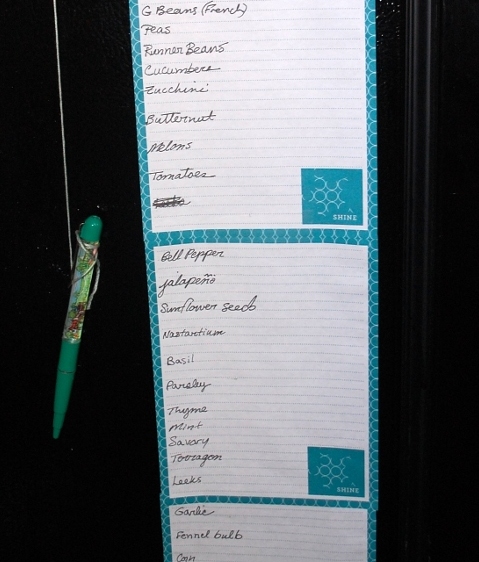 G Beans (French)
Peas
Runner Beans
Cucumbers
Zucchini
Butternut
Melons
Tomatoes
SHINE
Bell Pepper
jalapeño
Sunflower seeds
Nastartium
Basil
Parsley
Thyme
Mint
Savory
Tarragon
Leeks
SHINE
Garlic
Fennel bulb